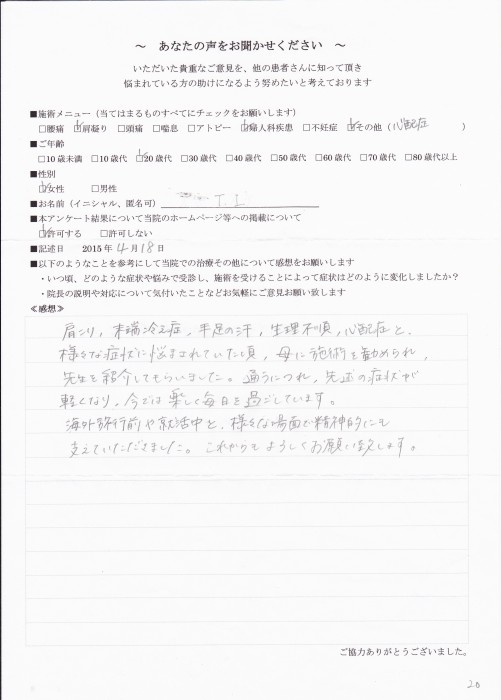 ～ あなたの声をお聞かせください ～
いただいた貴重なご意見を、他の患者さんに知って頂き
悩まれている方の助けになるよう努めたいと考えております
■施術メニュー（当てはまるものすべてにチェックをお願いします）
□腰痛 ☑肩凝り □頭痛 □喘息 □アトピー ☑婦人科疾患 □不妊症 ☑その他（心配症 ）
■ご年齢
□10歳未満 □10歳代 ☑20歳代 □30歳代 □40歳代 □50歳代 □60歳代 □70歳代 □80歳代以上
■性別
☑女性 □男性
■お名前（イニシャル、匿名可） T. I.
■本アンケート結果について当院のホームページ等への掲載について
☑許可する □許可しない
■記述日 2015年 4月 18日
■以下のようなことを参考にして当院での治療その他について感想をお願いします
・いつ頃、どのような症状や悩みで受診し、施術を受けることによって症状はどのように変化しましたか？
・院長の説明や対応について気付いたことなどお気軽にご意見お願い致します
≪感想≫
肩こり，末端冷え症，手足の汗，生理不順，心配症と，
様々な症状に悩まされていた頃，母に施術を勧められ，
先生を紹介してもらいました。通うにつれ，先述の症状が
軽くなり，今では楽しく毎日を過ごしています。
海外旅行前や就活中と，様々な場面で精神的にも
支えていただきました。これからもよろしくお願い致します。
ご協力ありがとうございました。
20